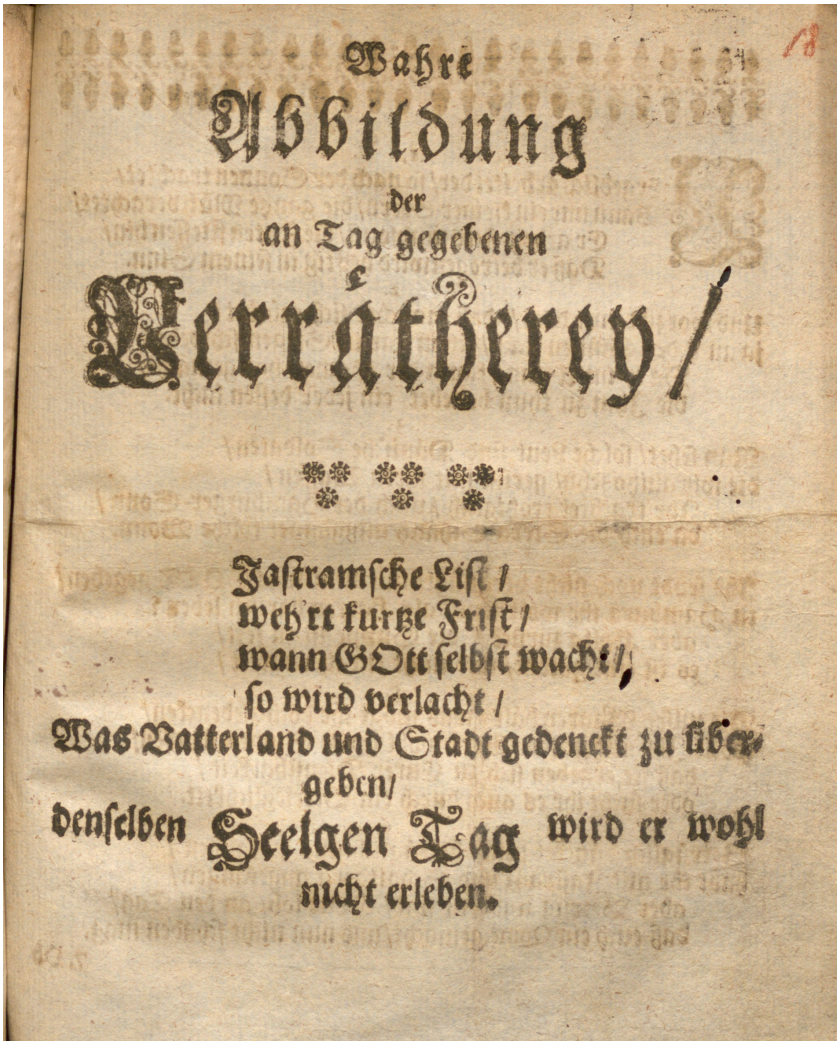 18
Wahre
Abbildung
der
an Tag gegebenen
Verrätherey/
Jastramsche List/
wehrt kurtze Frist/
wann GOtt selbst wacht/
so wird verlacht/
Was Vatterland und Stadt gedenckt zu über-
geben/
denselben Seelgen Tag wird er wohl
nicht erleben.